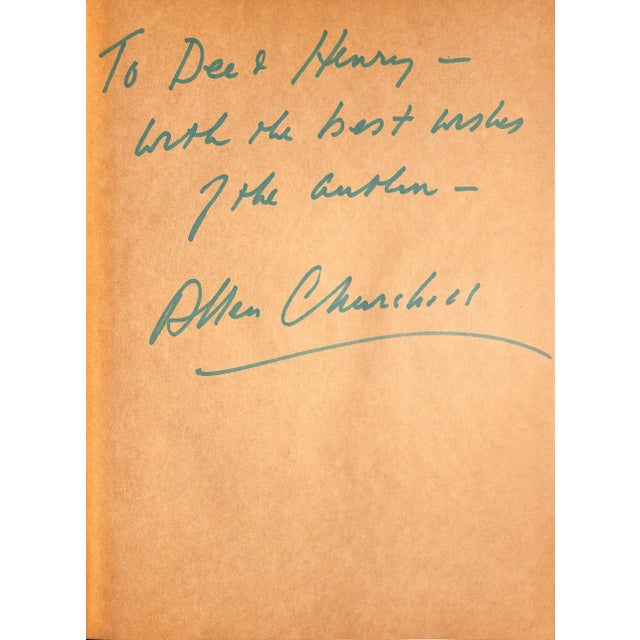 To Dee & Henry —
with the best wishes
of the author —
Allen Churchill